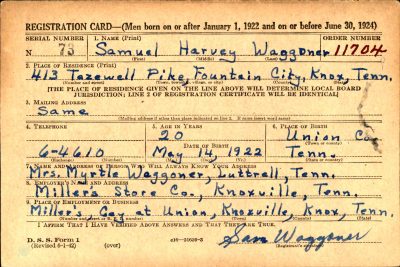 REGISTRATION CARD—(Men born on or after January 1, 1922 and on or before June 30, 1924)
SERIAL NUMBER 1. NAME (Print) ORDER NUMBER
N 73 Samuel Harvey Waggoner 11704
(First) (Middle) (Last)
2. PLACE OF RESIDENCE (Print)
413 Tazewell Pike, Fountain City, Knox, Tenn.
[THE PLACE OF RESIDENCE GIVEN ON THE LINE ABOVE WILL DETERMINE LOCAL BOARD
JURISDICTION; LINE 2 OF REGISTRATION CERTIFICATE WILL BE IDENTICAL]
3. MAILING ADDRESS
Same
[Mailing address if other than place indicated on line 2. If same insert word same]
4. TELEPHONE 5. AGE IN YEARS 6. PLACE OF BIRTH
20 Union Co.
DATE OF BIRTH (Town or county)
6-4610 May 14, 1922 Tenn.
(Exchange) (Number) (Mo.) (Day) (Yr.) (State or country)
7. NAME AND ADDRESS OF PERSON WHO WILL ALWAYS KNOW YOUR ADDRESS
Mrs. Myrtle Waggoner, Luttrell, Tenn.
8. EMPLOYER'S NAME AND ADDRESS
Miller's Store Co., Knoxville, Tenn.
9. PLACE OF EMPLOYMENT OR BUSINESS
Miller's Gay at Union, Knoxville, Knox, Tenn.
I AFFIRM THAT I HAVE VERIFIED ABOVE ANSWERS AND THAT THEY ARE TRUE.
D. S. S. Form 1
(Revised 6-1-42) (over) Sam Waggoner
(Registrant's signature)